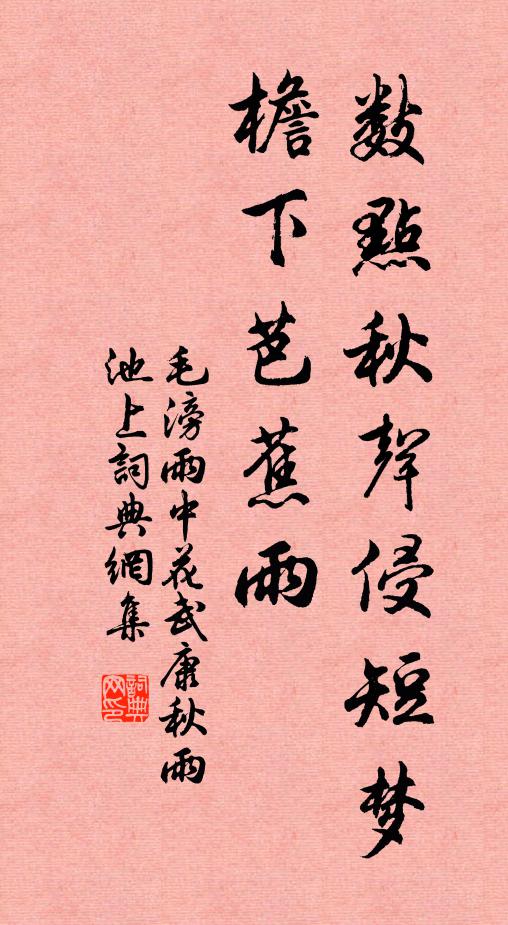 數點秋聲侵短梦
檐下芭蕉雨
毛滂雨中花武康秋雨
池上詞典網集
詞典网印